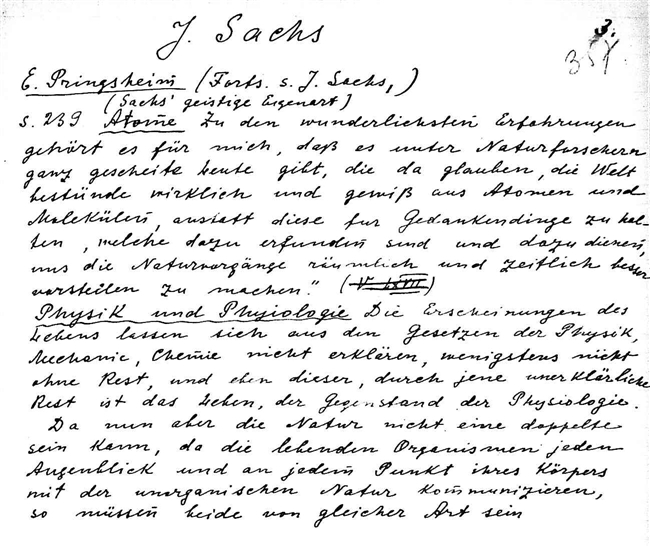 J. Sachs
3.
E. Pringsheim (Forts. s. J. Sachs,)
(Sachs' geistige Eigenart)
S. 239 Atome Zu den wunderlichsten Erfahrungen
gehört es für mich, daß es unter Naturforschern
ganz gescheite Leute gibt, die da glauben, die Welt
bestünde wirklich und gewiß aus Atomen und
Molekülen, anstatt diese fur Gedankendinge zu hal-
ten, welche dazu erfunden sind und dazu dienen,
uns die Naturvorgänge räumlich und zeitlich besser
vorstellen zu machen."
Physik und Physiologie Die Erscheinungen des
Lebens lassen sich aus den Gesetzen der Physik,
Mechanic, Chemie nicht erklären, wenigstens nicht
ohne Rest, und eben dieser, durch jene unerklärliche
Rest ist das Leben, der Gegenstand der Physiologie.
Da nun aber die Natur nicht eine doppelte
sein kann, da die lebenden Organismen jeden
Augenblick und an jedem Punkt ihres Körpers
mit der unorganischen Natur kommunizieren,
so müssen beide von gleicher Art sein